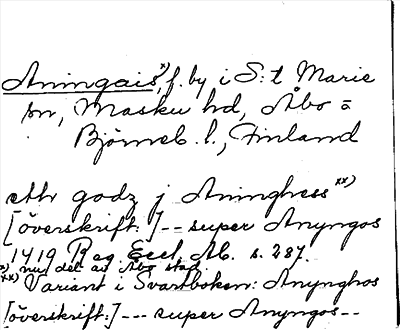 Aningais x), f. by i S:t Marie
sn, Masku hd, Åbo o
Björneb. l., Finland
ett godz j Aninghess xx)
[överskrift:] -- super Anyngos
1419 Reg. Eccl. Ab. s. 287.
x) nu del av Åbo stad
xx) Variant i Svartboken: Anynghos
[överskrift:] --- super Anyngos --